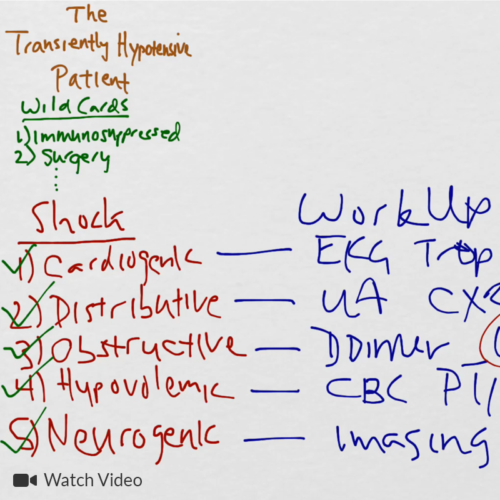 The
Transiently Hypotensive
Patient
Wild Cards
1) Immunosuppressed
2) Surgery
Shock
WorkUp
1) Cardiogenic — EKG Trop
2) Distributive — UA CX
3) Obstructive — DDimer
4) Hypovolemic — CBC
5) Neurogenic — Imaging
Watch Video